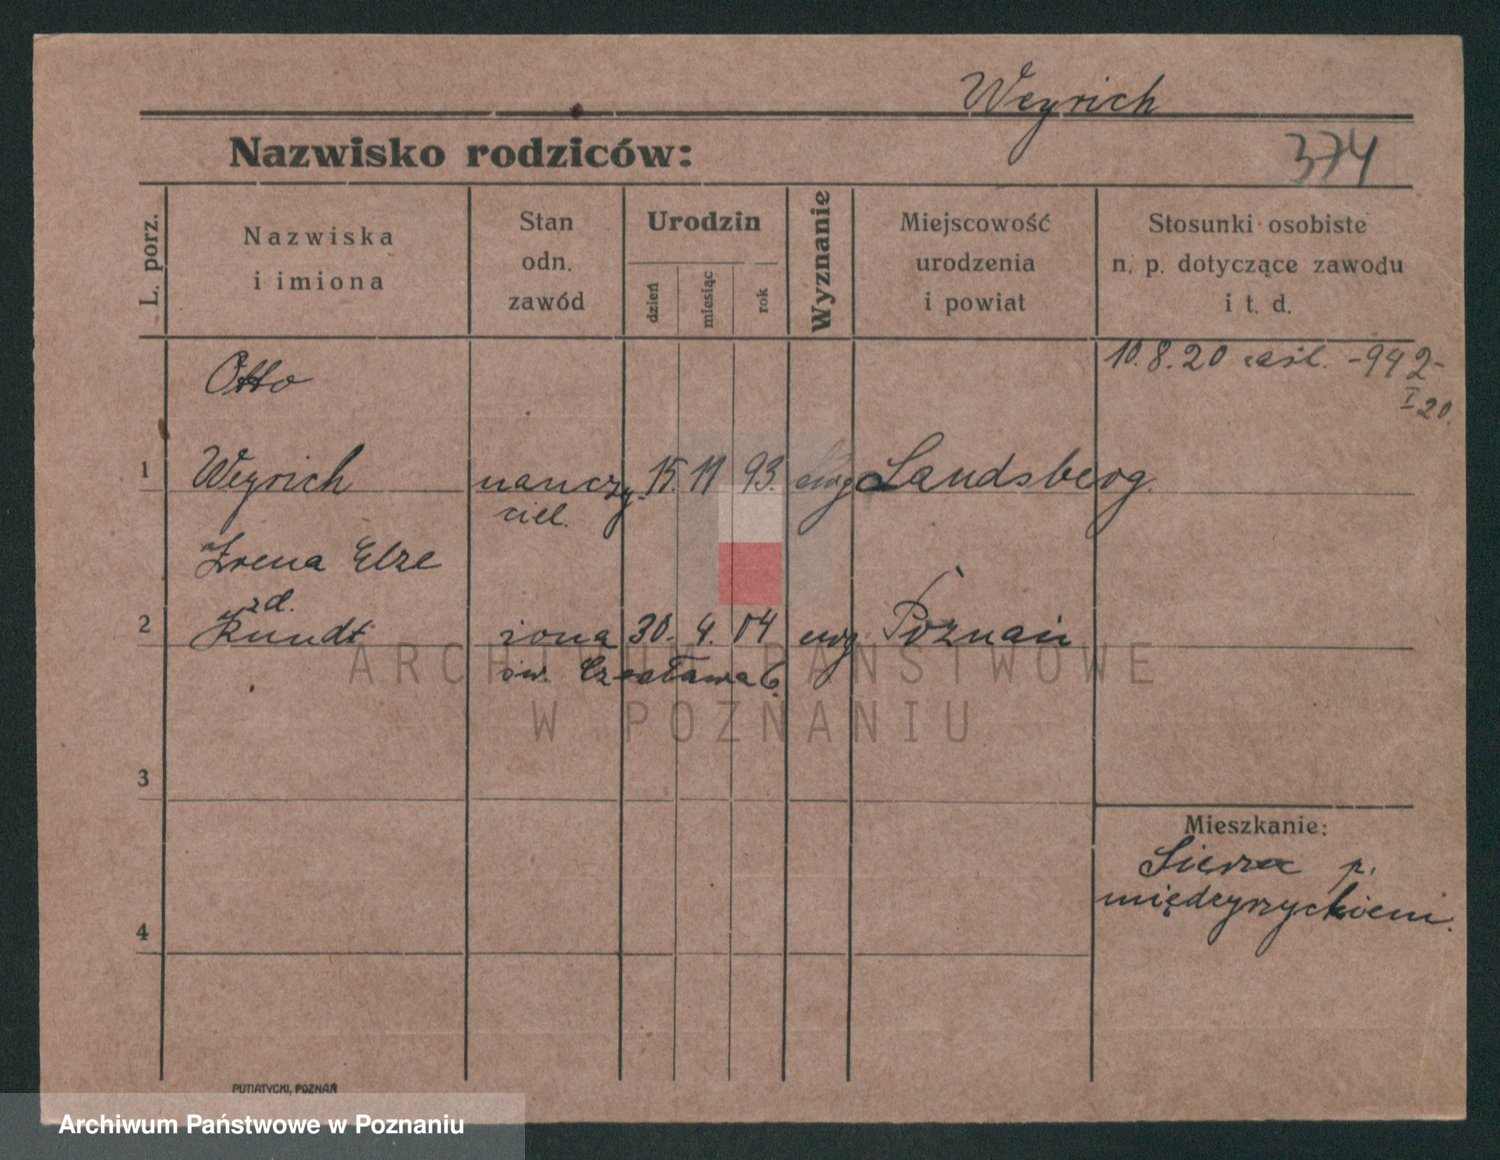 Weyrich
Nazwisko rodziców:
374
L. porz.
Nazwiska
i imiona
Stan
odn.
zawód
Urodzin
dzień
miesiąc
rok
Wyznanie
Miejscowość
urodzenia
i powiat
Stosunki osobiste
n. p. dotyczące zawodu
i t. d.
10.8.20 -942-
I 20.
Otto
1 Weyrich nauczy- 15. 11 93. ewg Landsberg.
ciel.
Irena Elze
zd.
2 Kundt żona 30. 4. 04 ewg. Poznań
św. Czesława 6.
ARCHIWUM PAŃSTWOWE
W POZNANIU
3
Mieszkanie:
p.
międzyrzyckiem.
4
PUTIATYCKI, POZNAŃ
Archiwum Państwowe w Poznaniu